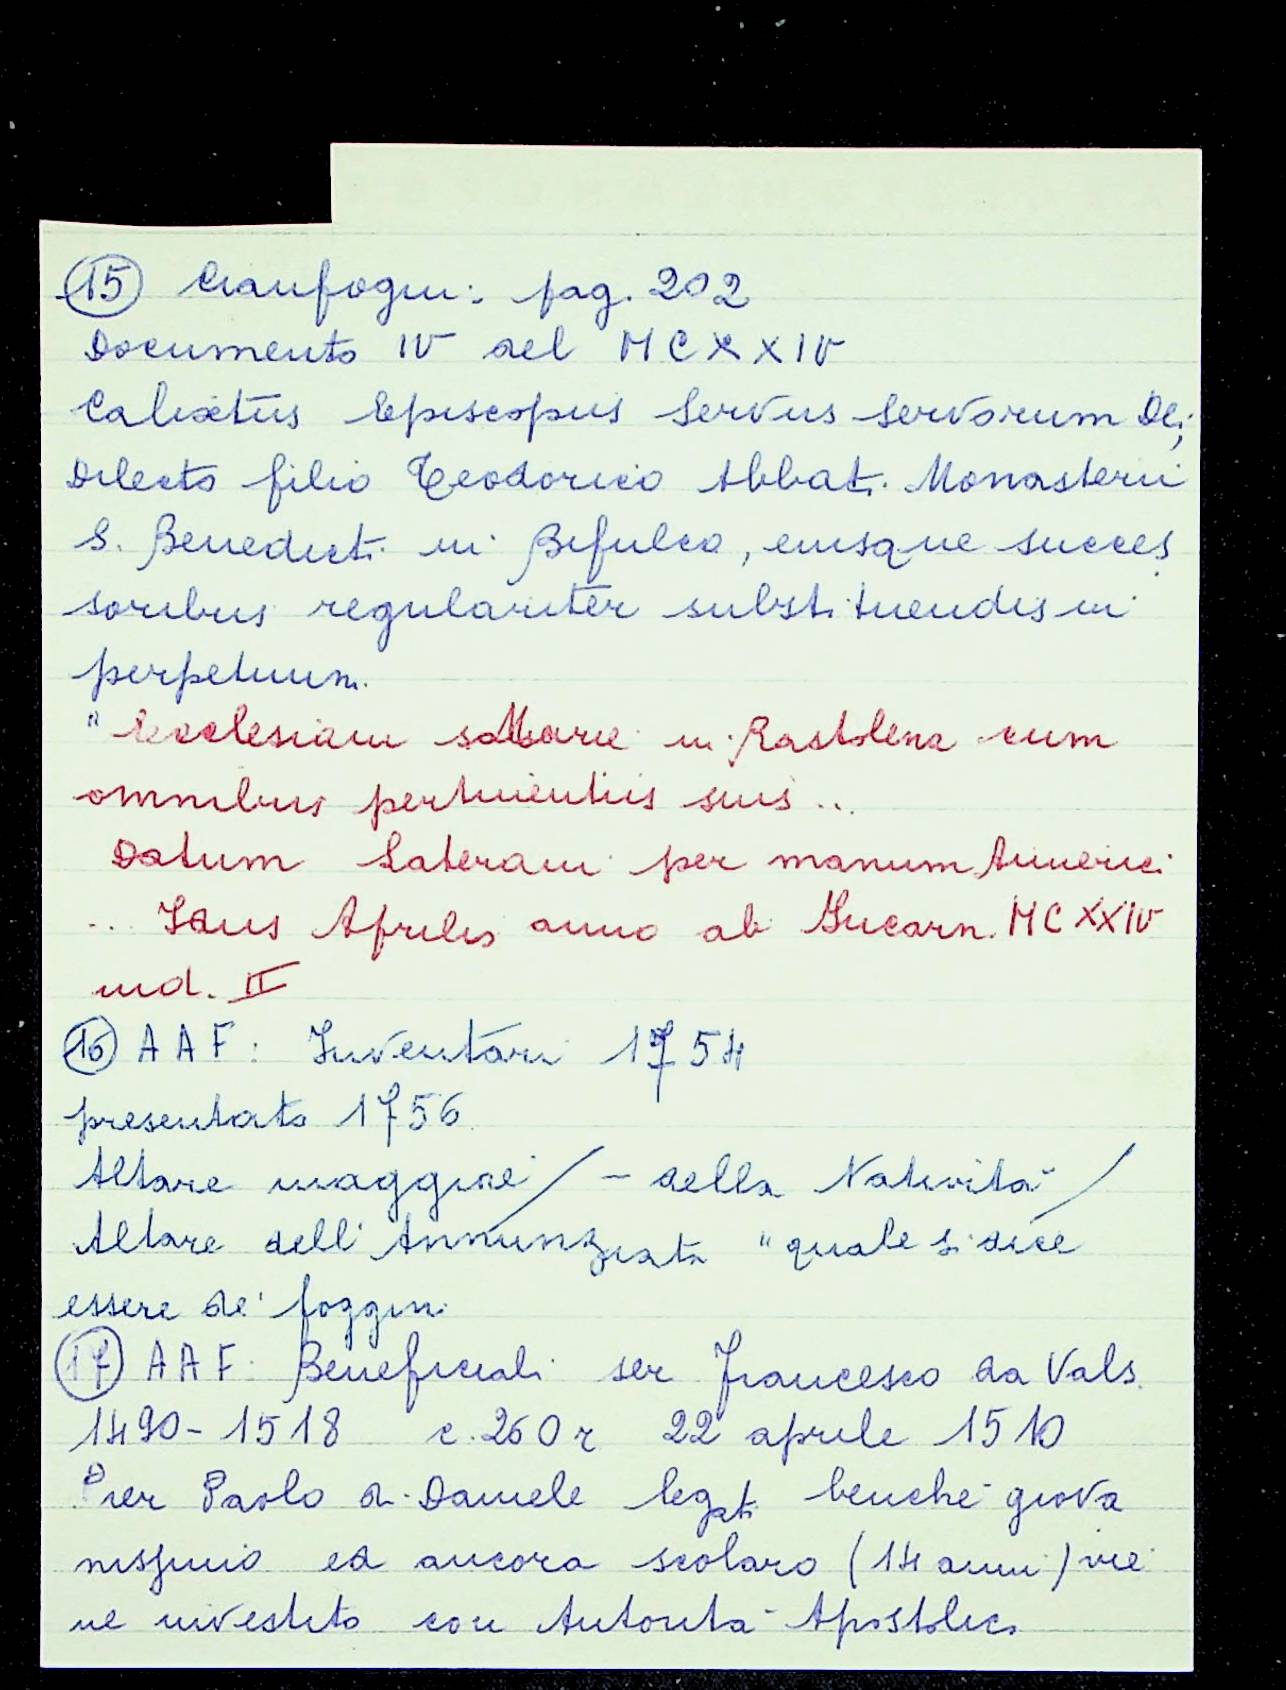 15 Cianfogni: pag. 202
Documento IV del MCXXIV
Calixtus Episcopus Servus Servorum Dei,
Dilecto filio Teodorico Abbati Monasterii
S. Benedicti in Bifulco, eiusque succes
soribus regulariter substituendis in
perpetuum.
"Ecclesiam s. Marie in Rastolena cum
omnibus pertinentiis suis ..
Datum Laterani per manum Aimerici
... Idus Aprilis anno ab Incarn. MCXXIV
ind. II
16 AAF: Inventari 1754
presentato 1756
Altare maggiore / - della Natività /
Altare dell'Annunziata "quale si dice
essere de' foggini
17 AAF: Beneficiali ser Francesco da Vals.
1490-1518 c. 260 r 22 aprile 1510
Pier Paolo di Daniele legati benché giova
nissimo ed ancora scolaro (14 anni) vie
ne investito con Autorità Apostolica